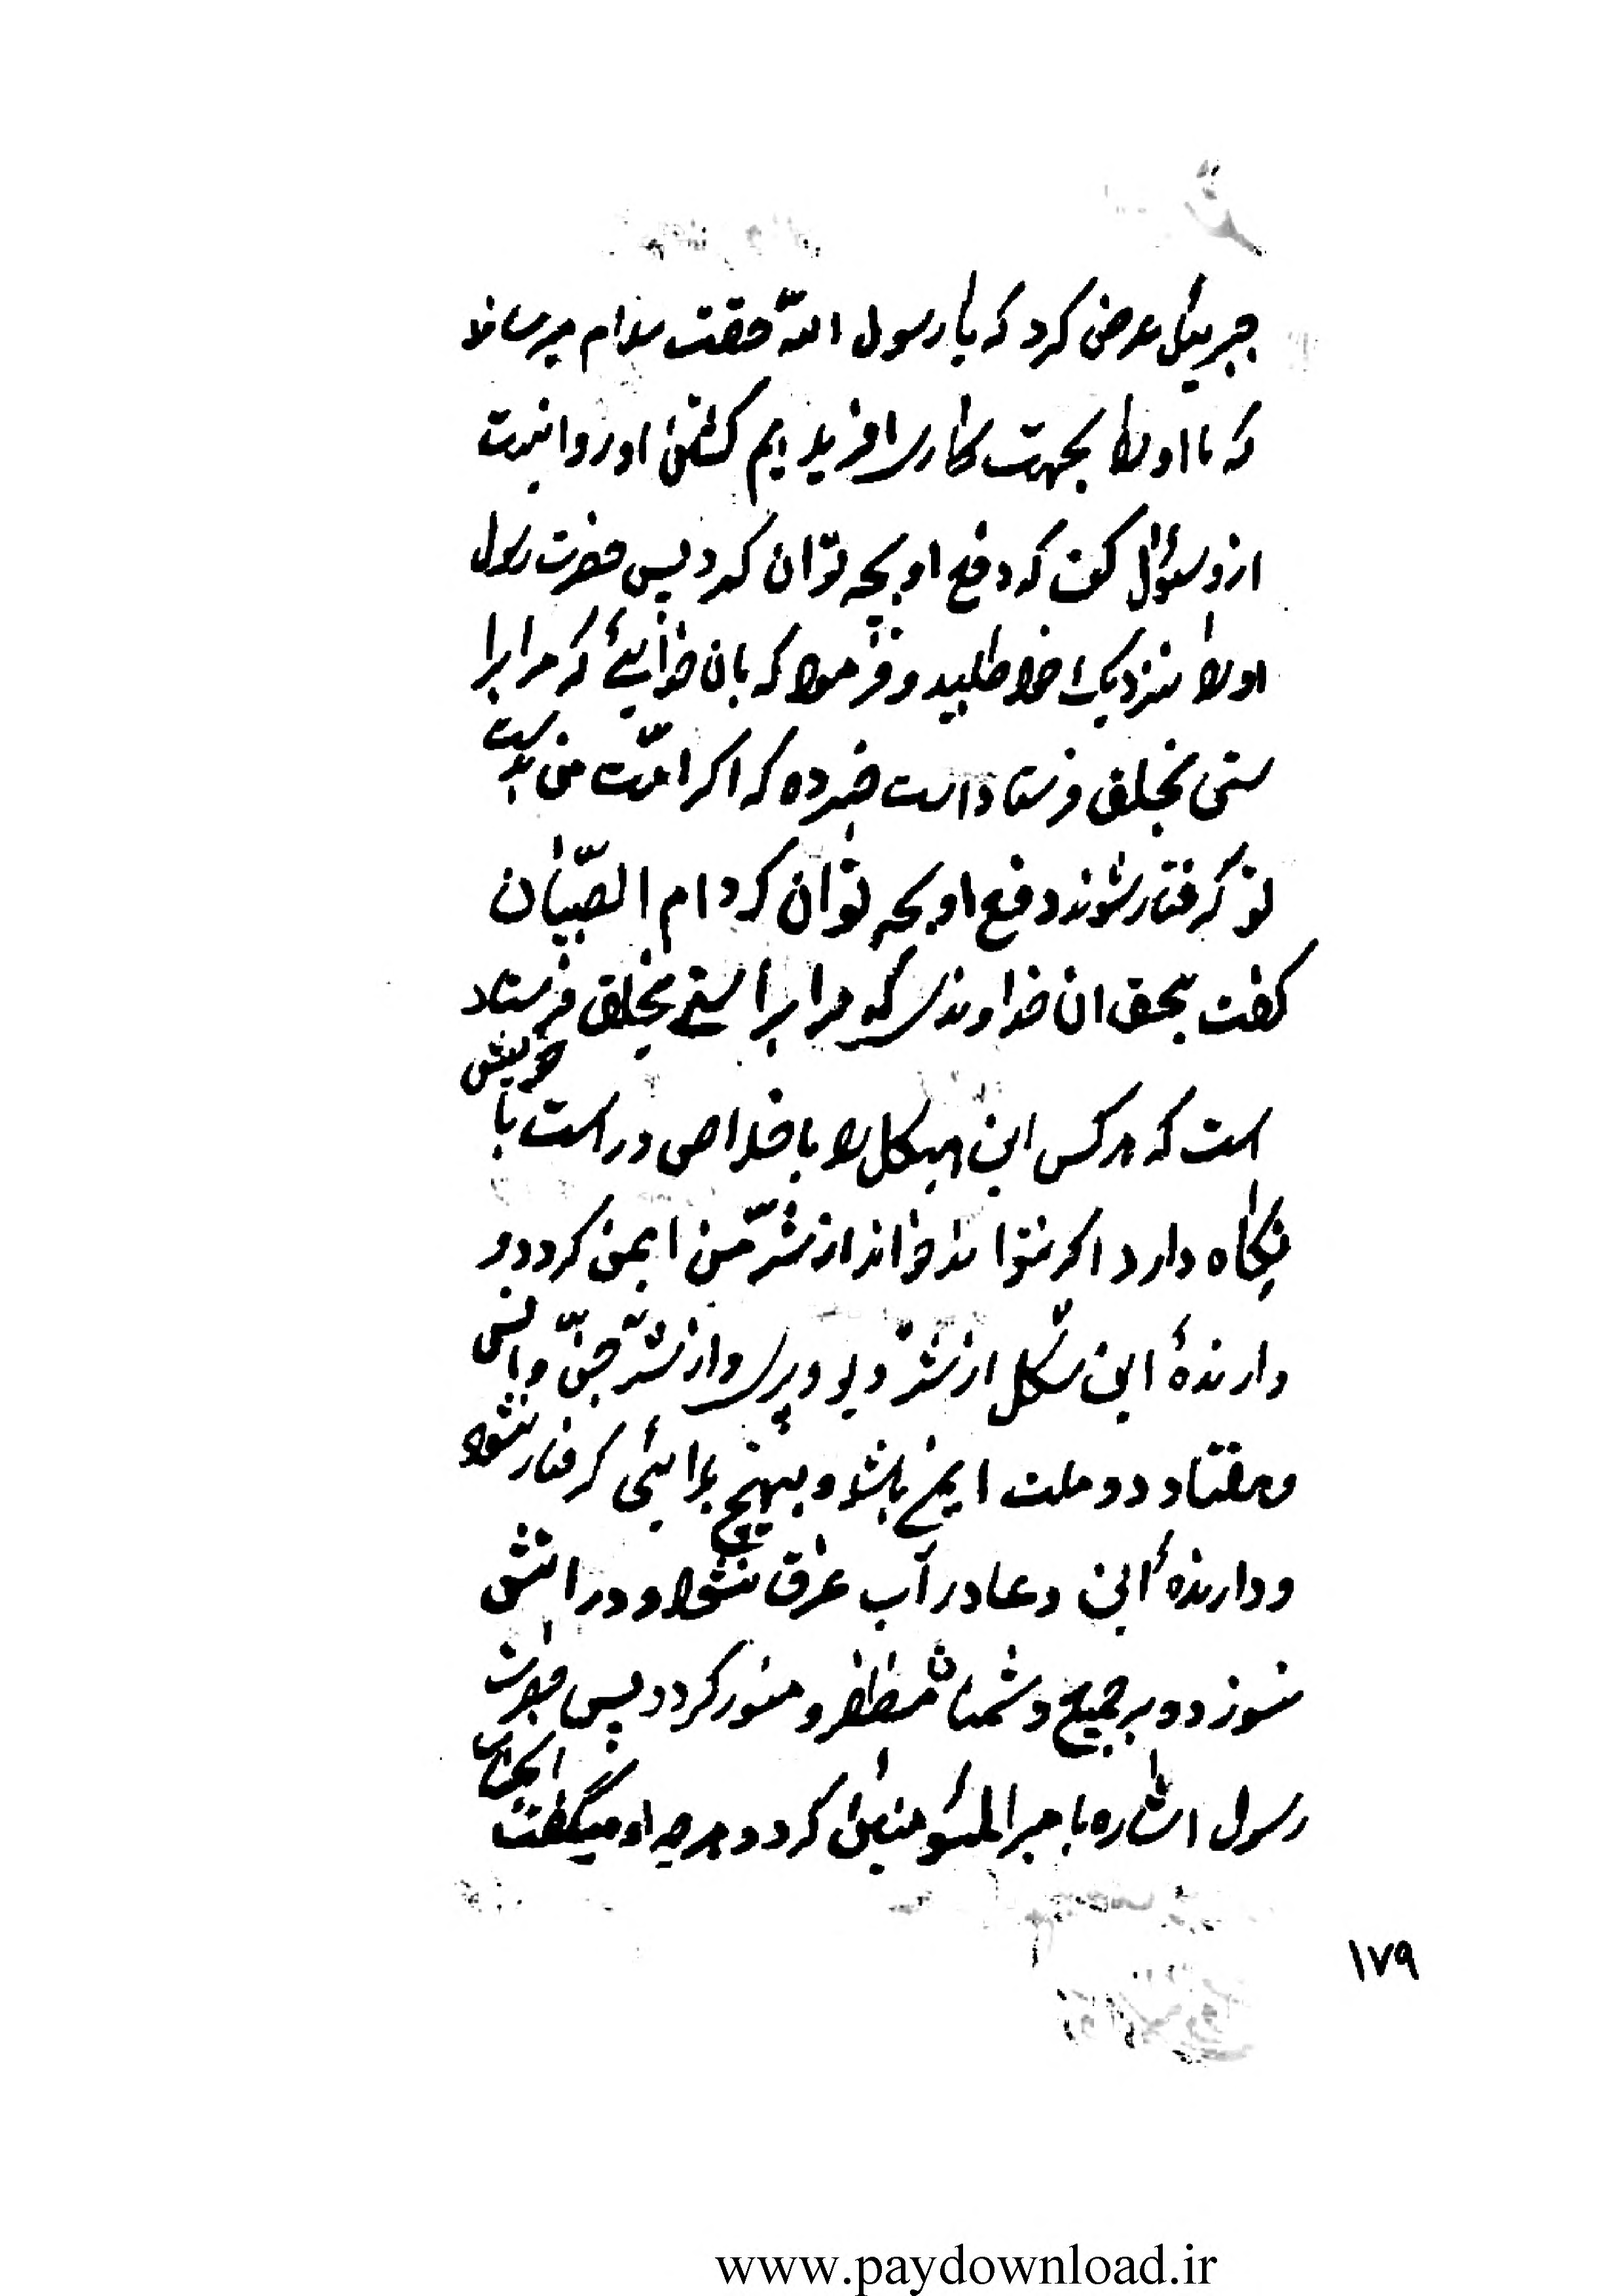 جبرئیل عرض کرد که یا رسول اللّه حقت سلام میرساند
که ما او را بجهت کاری افریده ایم کشتن او روا نیست
ازو سؤال کن که دفع او بچه توان کرد پس حضرت رسول
او را بنزدیک خود طلبید و فرمود که بان خدائی که مرا برا
ستی بخلق فرستاد است خبر ده که اکر امّت من بدست
تو کرفتار شوند دفع او بچه توان کرد ام الصّبیان
کفت بحق ان خداوندی که مرا براستی بخلق فرستاد
است که هر کس این هیکل را باخلاص دراست با خویش
نکاه دارد اکر نتواند خواند از شرّ من ایمن کردد و
دارندهٔ این شکل از شرّ دیو و پری و از شرّ جنّ و انس
و هفتاد و دو ملت ایمن باشد و بهیچ بلائی کرفتار نشود
و دارندهٔ این دعا در آب غرق نشود و در اتش
نسوزد و بر جمیع دشمنان مظفر و منور کردد پس حضرت
رسول اشاره با میرالمؤمنین کرد و هر چه او میکفت انحضرت
۱۷۹
www.paydownload.ir